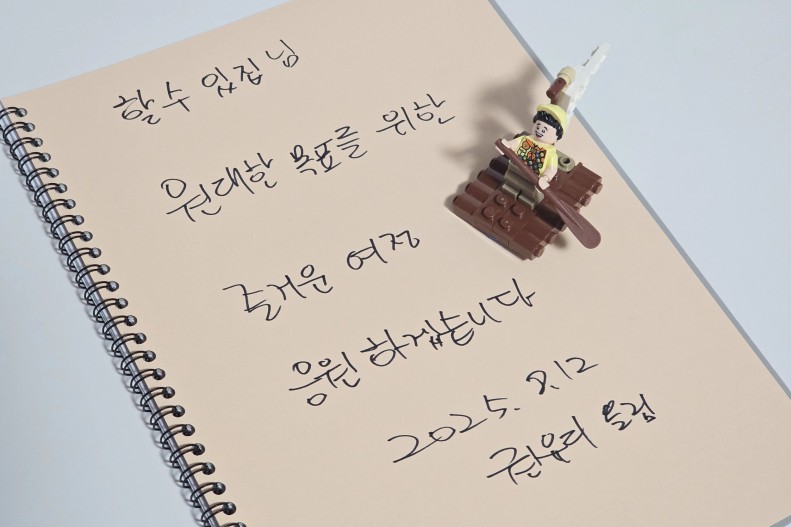 할수 있집 님
원대한 목표를 위한
즐거운 여정
응원하겠습니다
2025. 9.12
권유리 드림